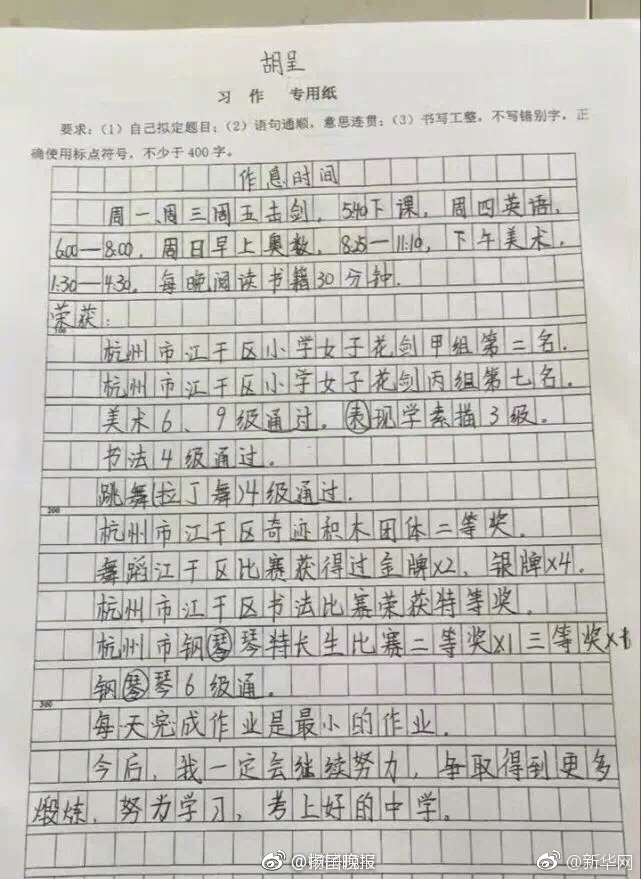 胡呈
习 作 专用纸
要求：（1）自己拟定题目；（2）语句通顺，意思连贯；（3）书写工整，不写错别字，正
确使用标点符号，不少于400字。
作息时间
周一、周三周五击剑，5:40下课，周四英语，
6:00—8:00，周日早上奥数，8:25—11:10，下午美术，
1:30—4:30。每晚阅读书籍30分钟。
荣获：
100
杭州市江干区小学女子花剑甲组第三名。
杭州市江干区小学女子花剑丙组第七名。
美术6、9级通过。表现学素描3级。
书法4级通过。
跳舞（拉丁舞）4级通过。
200
杭州市江干区奇迹积木团体二等奖。
舞蹈江干区比赛获得过金牌×2，银牌×4。
杭州市江干区书法比赛荣获特等奖。
杭州市钢琴特长生比赛二等奖×1三等奖×
钢琴6级通。
300
每天完成作业是最小的作业。
今后，我一定会继续努力，争取得到更多
煅炼，努力学习，考上好的中学。
@扬子晚报
@新华网